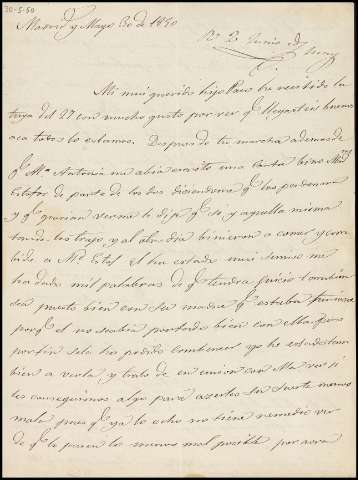 30-5-50
Madrid y Mayo 30 de 1850
Rda 2 Junio de
Mi muy querido hijo Paco he recibido la
tuya del 27 con mucho gusto por ver qe llegasteis buenos
aca todos lo estamos. Despues de tu marcha ademas de
qe Ma Antonia me abia escrito una Carta bino Mad
Estol de parte de los dos diciendome qe los perdonara
y qe querian verme le dije qe si, y aquella misma
tarde los trajo y al otro dia binieron a comer y
a Md Estol. El ha estado muy
ha dado mil palabras de qe tendra juicio tambien
sea puesto bien con su madre qe estaba furiosa
porqe el no se abia portado bien con Ma pero
por fin se lo ha podido combencer yo he estado tan
bien a verla y trato de en union con Ma ver si
les conseguimos algo para acerlos su suerte menos
mala pues qe ya lo echo no tiene remedio ver
de qe lo pasen lo menos mal posible por aora